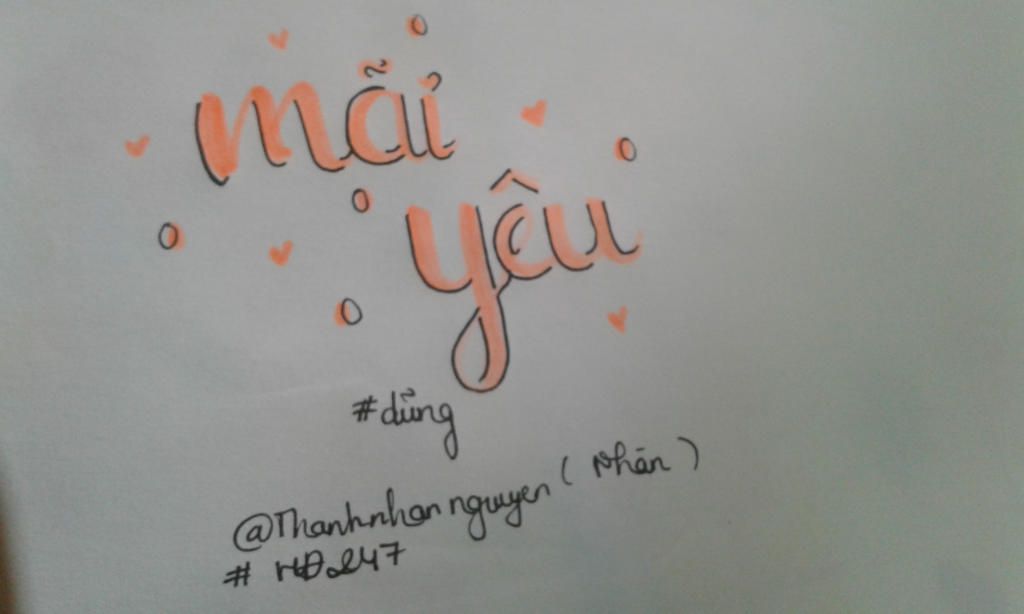 mãi
yêu
#dũng
@Thanhnhannguyen ( Nhân )
# HĐ247